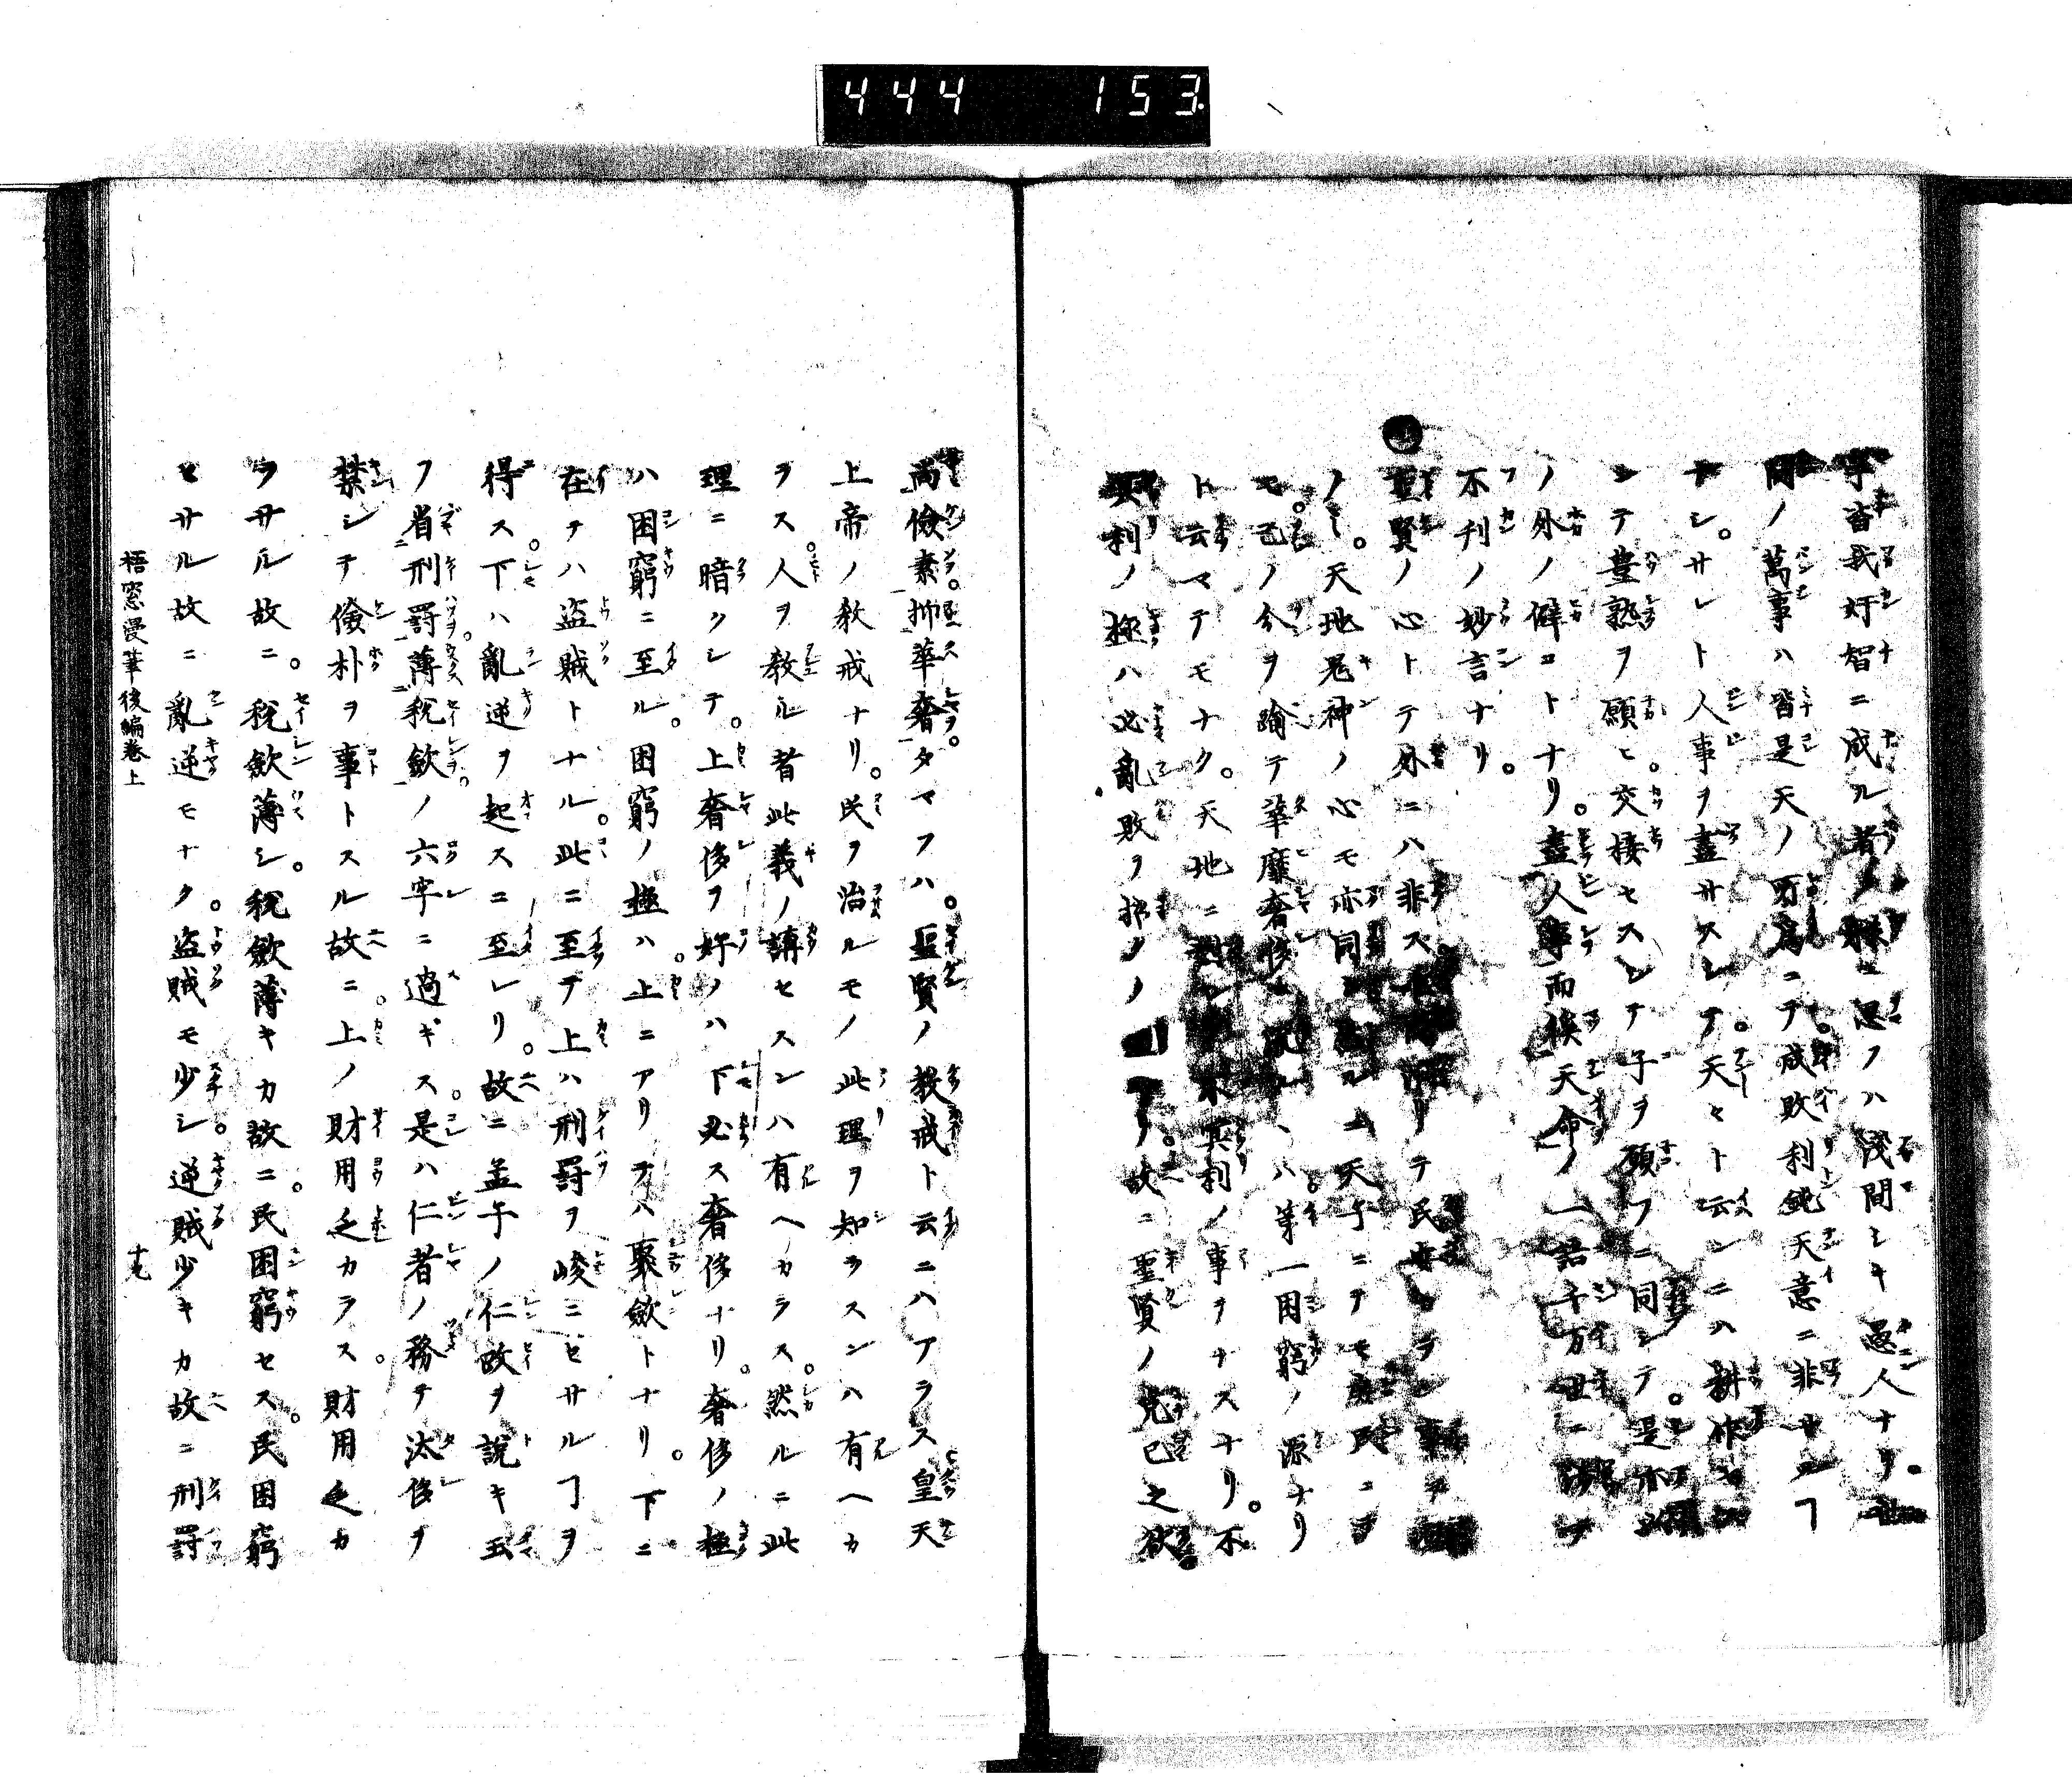 444 153
事皆我奸智ニ成ル者ノ様ニ思フハ浅間シキ愚人ナリ。世
間ノ萬事ハ皆是天ノ所為ニテ。成敗利鈍天意ニ非サルヿ
ナシ。サレト人事ヲ盡サスシテ。天々ト云ンニハ耕作セス
シテ豊熟ヲ願ヒ。交接セスシテ子ヲ願フニ同シテ。是和
ノ外ノ僻コトナリ。盡人事而俟天命ノ一語千万世ニ
不刊ノ妙言ナリ。
聖賢ノ心トテ外ニハ非ス リテ民 事ヲ
ノミ。天地鬼神ノ心モ亦同 ル 天子ニテモ庶民ニテ
モ。己ノ分ヲ踰テ華靡奢侈 ハ第一困窮ノ源ナリ
ト云マテモナク。天地ニ 其利ノ事ヲナスナリ。不
其利ノ極ハ必亂敗ヲ招クノ ナリ。故ニ聖賢ノ克己之欲。
尚儉素。抑華奢タマフハ。聖賢ノ教戒ト云ニハアラス皇天
上帝ノ教戒ナリ。民ヲ治ルモノ此理ヲ知ラスンハ有ヘカ
ラス。人ヲ教ル者此義ノ講セスンハ有ヘカラス。然ルニ此
理ニ暗クシテ。上奢侈ヲ好ノハ下必ス奢侈ナリ。奢侈ノ極
ハ困窮ニ至ル。困窮ノ極ハ。上ニアリテハ聚斂トナリ。下ニ
在テハ盗賊トナル。此ニ至テ上ハ刑罰ヲ峻ニセサルヿヲ
得ス。下ハ亂逆ヲ起スニ至レリ。故ニ孟子ノ仁政ヲ説キ玉
フ省刑罰。薄税斂。ノ六字ニ過ギス。是ハ仁者ノ務テ汰侈ヲ
禁シテ儉朴ヲ事トスル故ニ。上ノ財用乏カラス。財用乏カ
ラサル故ニ。税斂薄シ。税斂薄キカ故ニ。民困窮セス。民困窮
セサル故ニ亂逆モナク。盗賊モ少シ。逆賊少キカ故ニ刑罰
梧窓漫筆後編巻上
十九